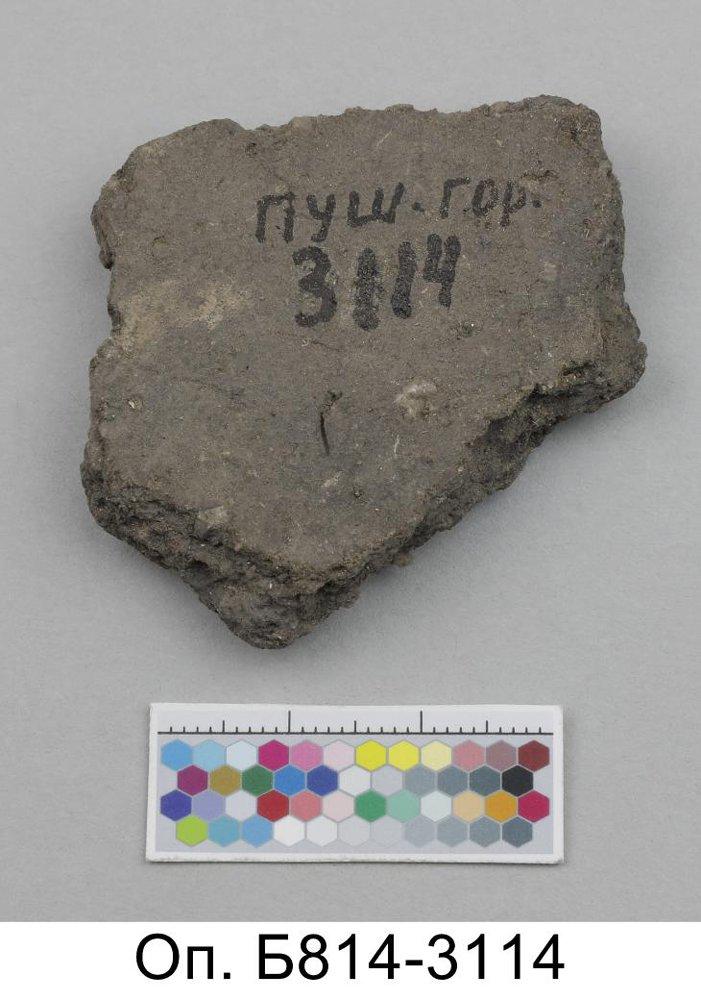 ПУШ.ГОР.
3114
Оп. Б814-3114